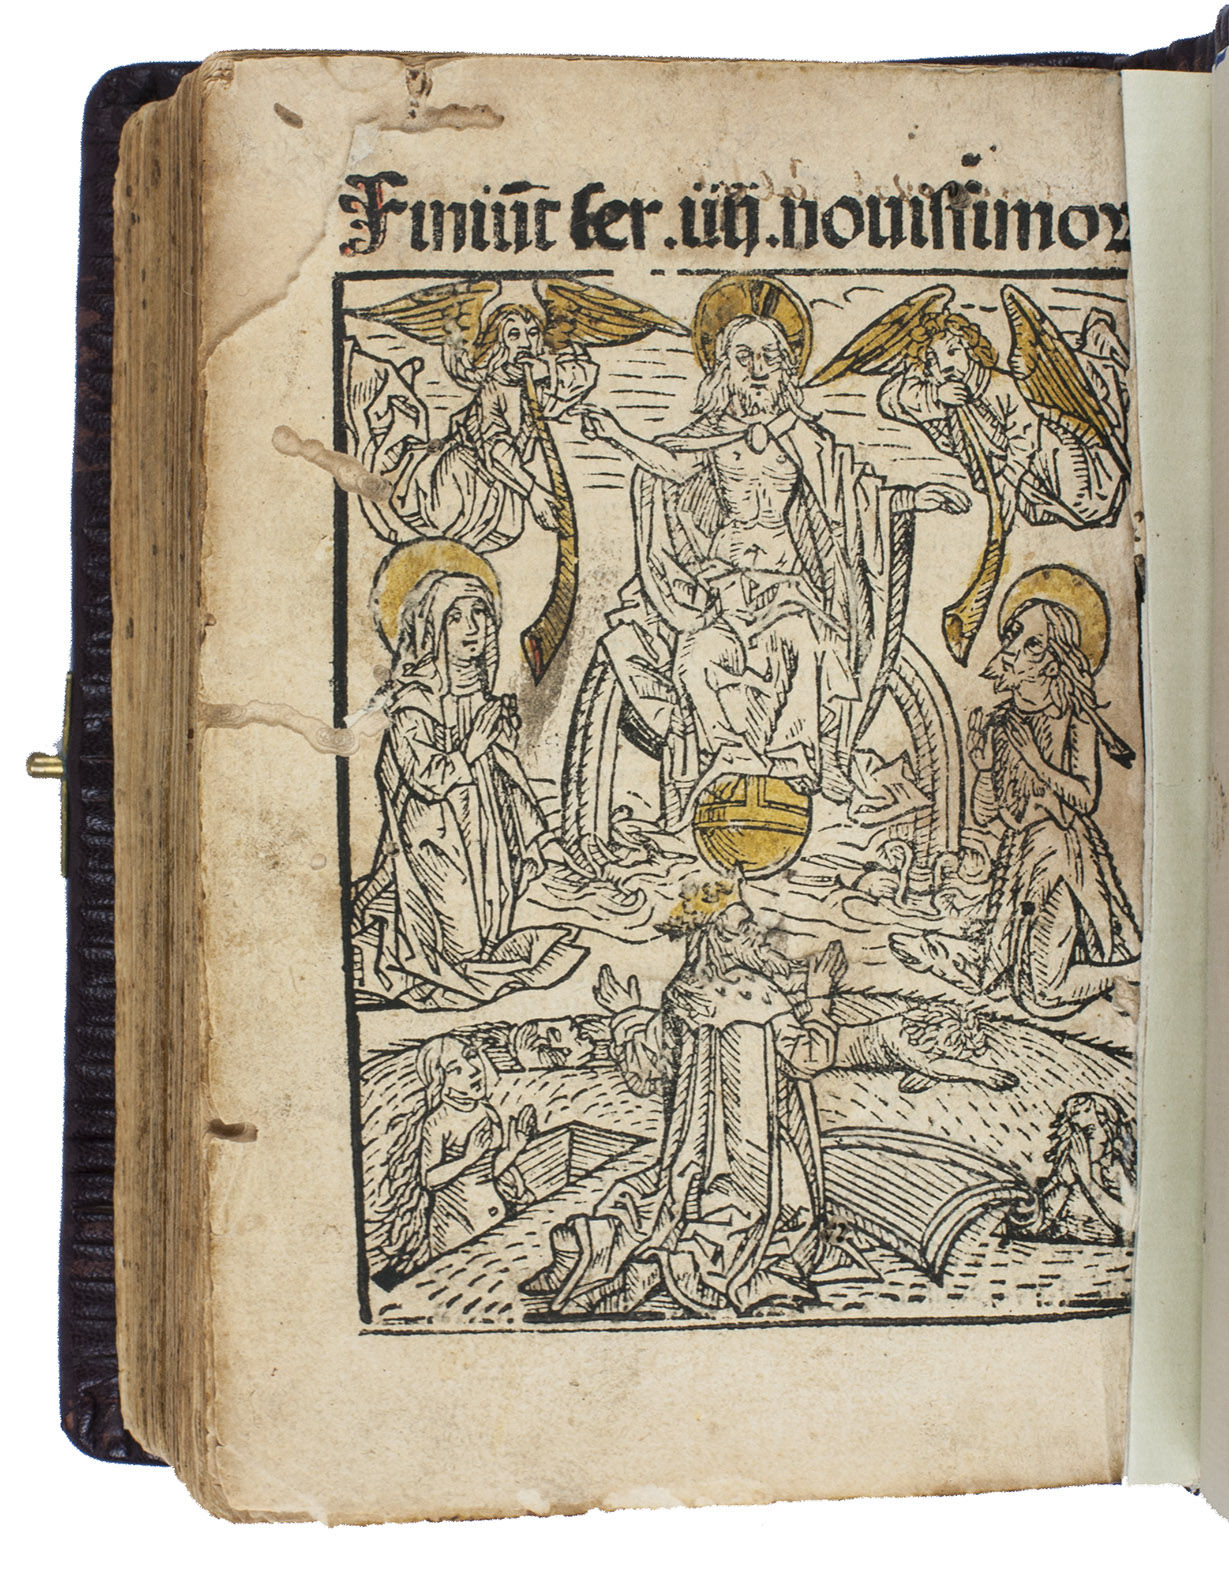 Finiūt ser .iiij. nouissimor